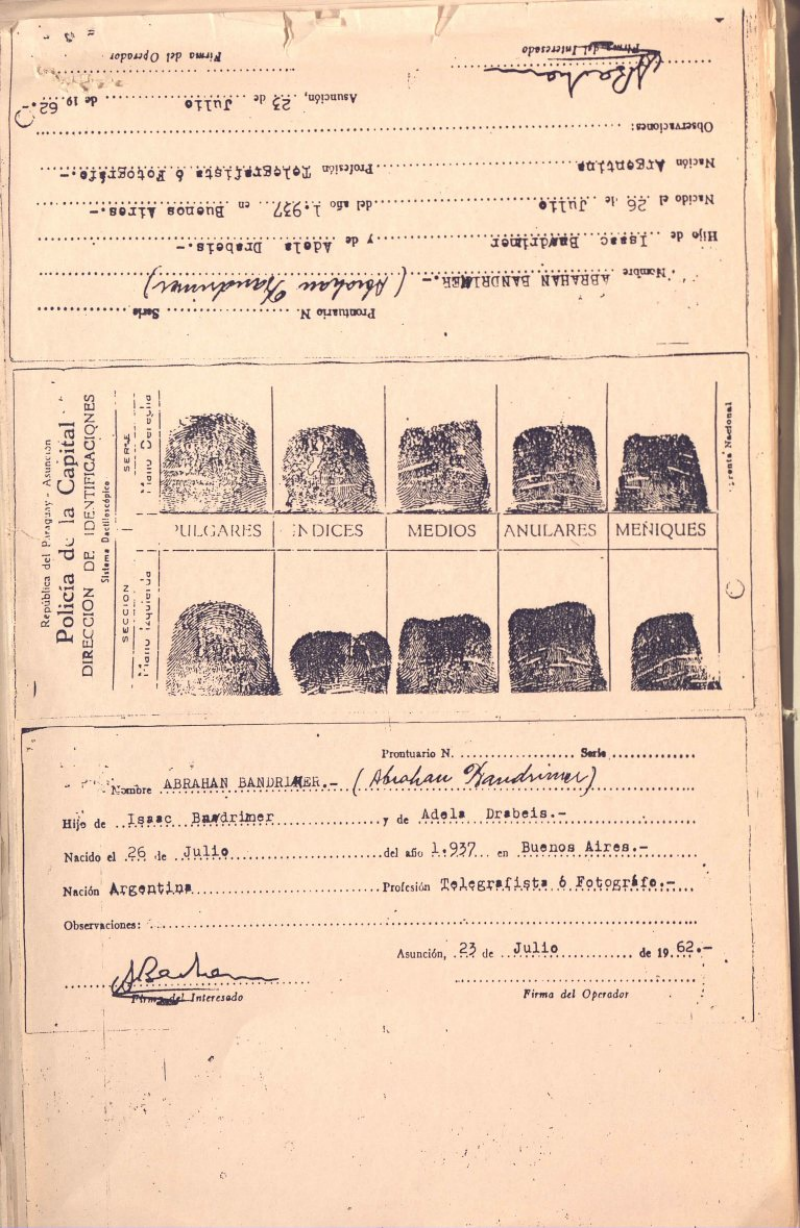 Firma del Operador Firma del Interesado
Asunción, 23 de Julio de 19 62.-
Observaciones:
Nación Argentina Profesión Telegrafista ó Fotográfo.-
Nacido el 26 de Julio del año 1.937 en Buenos Aires.-
Hijo de Isaac Bandrimer y de Adela Drabeis.-
Nombre ABRAHAN BANDRIMER.- (Abrahan Bandrimer)
Prontuario N. Serie
República del Paraguay - Asunción
Policía de la Capital
DIRECCION DE IDENTIFICACIONES
Sistema Dactiloscópico
SERIE
SECCION
Mano Derecha
Mano Izquierda
PULGARES INDICES MEDIOS ANULARES MEÑIQUES
Imprenta Nacional
Prontuario N. Serie
Nombre ABRAHAN BANDRIMER.- (Abrahan Bandrimer)
Hijo de Isaac Bandrimer y de Adela Drabeis.-
Nacido el 26 de Julio del año 1.937 en Buenos Aires.-
Nación Argentina Profesión Telegrafista ó Fotográfo.-
Observaciones:
Asunción, 23 de Julio de 19 62.-
Firma del Interesado Firma del Operador